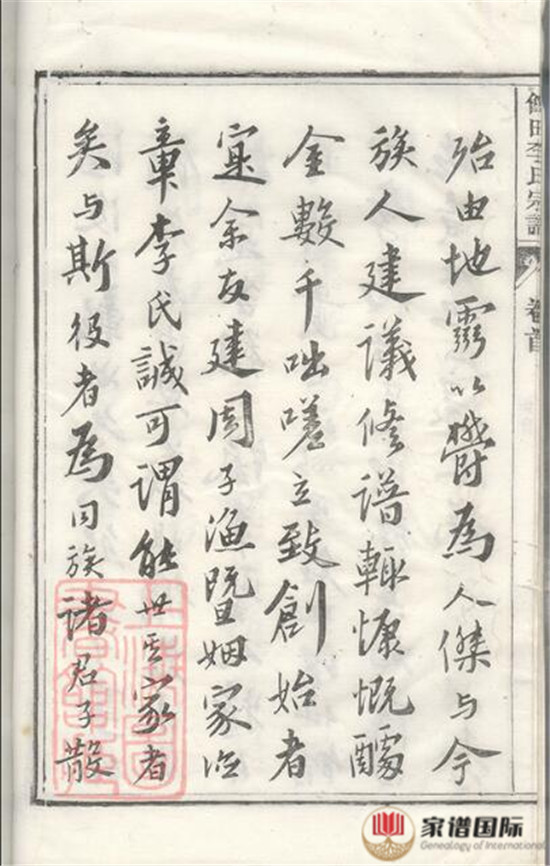 田李氏宗譜
卷首
殆由地靈以鬱為人傑與今
族人建議修譜輒慷慨醵
金數千咄嗟立致創始者
寔余友建周子漁暨姻家
章李氏誠可謂能世其家者
矣与斯役者為同族諸君子散
上海圖書館藏
家谱国际
Genealogy of International